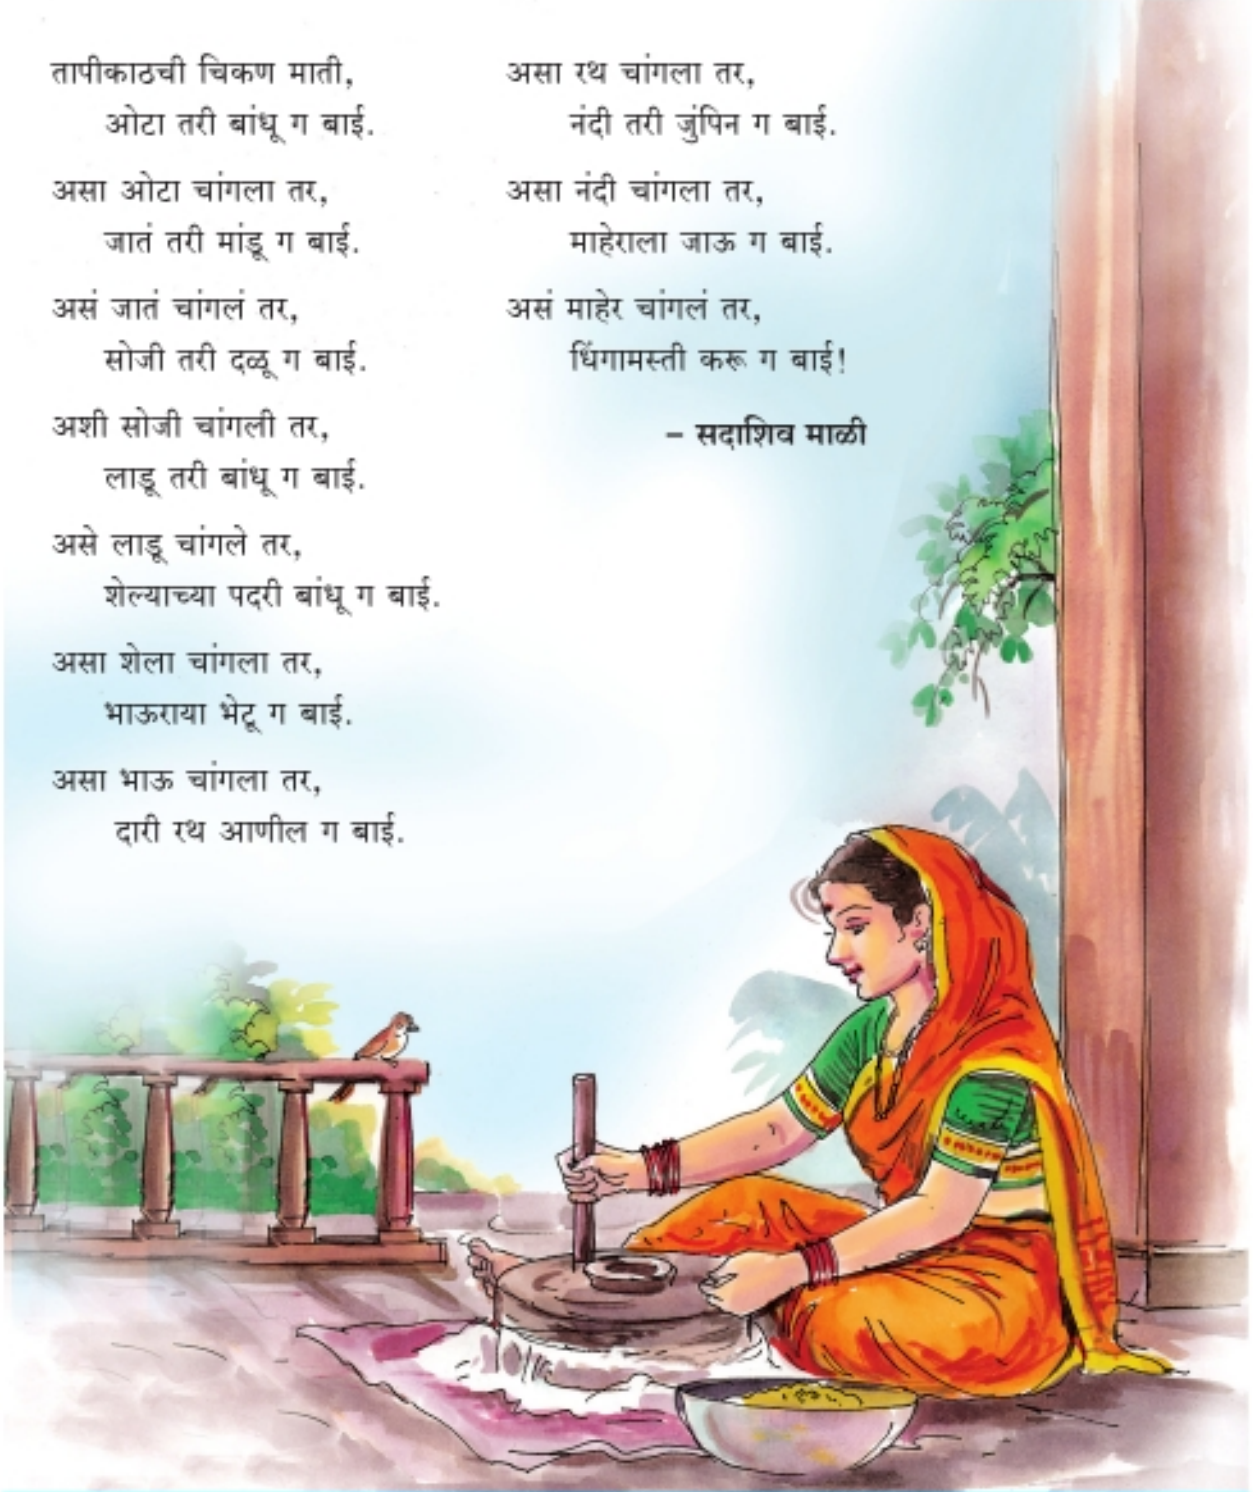 तापीकाठची चिकण माती,
ओटा तरी बांधू ग बाई.
असा ओटा चांगला तर,
जातं तरी मांडू ग बाई.
असं जातं चांगलं तर,
सोजी तरी दळू ग बाई.
अशी सोजी चांगली तर,
लाडू तरी बांधू ग बाई.
असे लाडू चांगले तर,
शेल्याच्या पदरी बांधू ग बाई.
असा शेला चांगला तर,
भाऊराया भेटू ग बाई.
असा भाऊ चांगला तर,
दारी रथ आणील ग बाई.
असा रथ चांगला तर,
नंदी तरी जुंपिन ग बाई.
असा नंदी चांगला तर,
माहेराला जाऊ ग बाई.
असं माहेर चांगलं तर,
धिंगामस्ती करू ग बाई!
– सदाशिव माळी